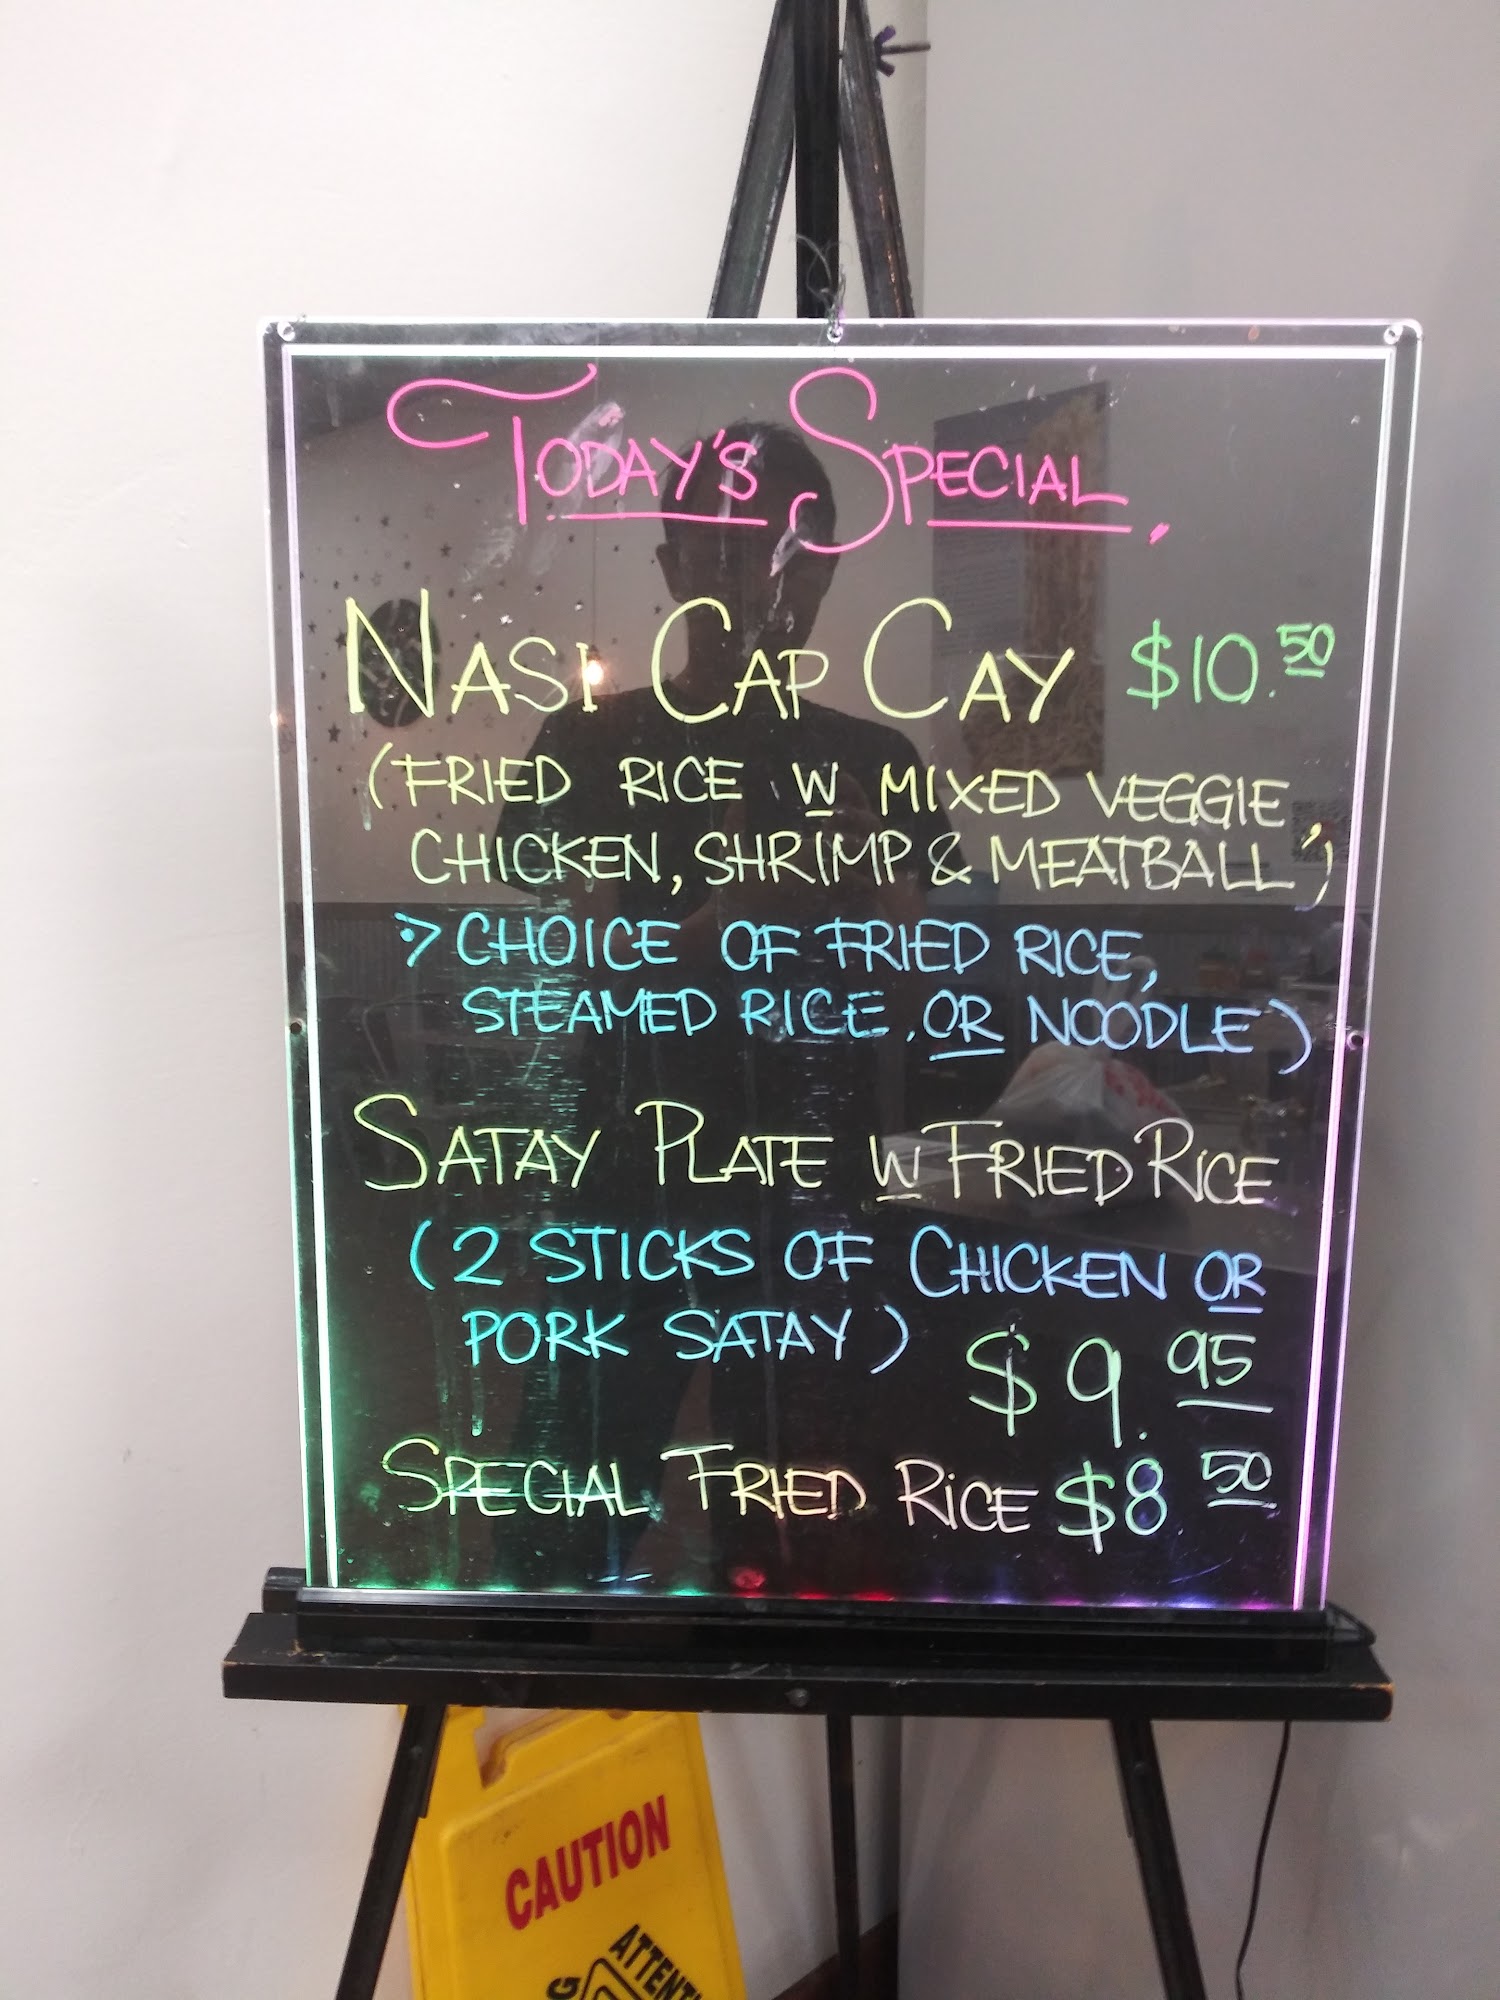 TODAY'S SPECIAL
NASI CAP CAY $10.50
(FRIED RICE W MIXED VEGGIE,
CHICKEN, SHRIMP & MEATBALL)
> CHOICE OF FRIED RICE,
STEAMED RICE, OR NOODLE)
SATAY PLATE W FRIED RICE
(2 STICKS OF CHICKEN OR
PORK SATAY)
$9.95
SPECIAL FRIED RICE $8 50
CAUTION